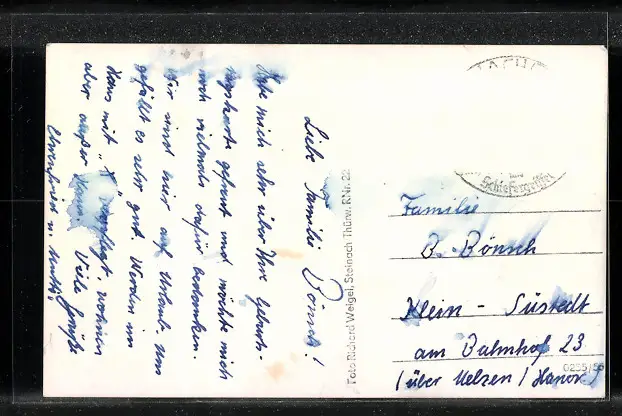 Liebe Familie Bönsch!
Habe mich sehr über Ihre Geburts-
tagskarte gefreut und möchte mich
noch vielmals dafür bedanken.
Wir sind hier auf Urlaub. Uns
gefällt es sehr gut. Werden im
Haus mit verpflegt, wohnen
aber außer Haus. Viele Grüße
Ehrenfried u. Mutti.
Foto Richard Weigel, Steinach Thürw. RNr. 22
und
Schiefergriffel
Familie
B. Bönsch
Klein - Süstedt
am Bahnhof 23
(über Uelzen / Hanov.)
0255/56